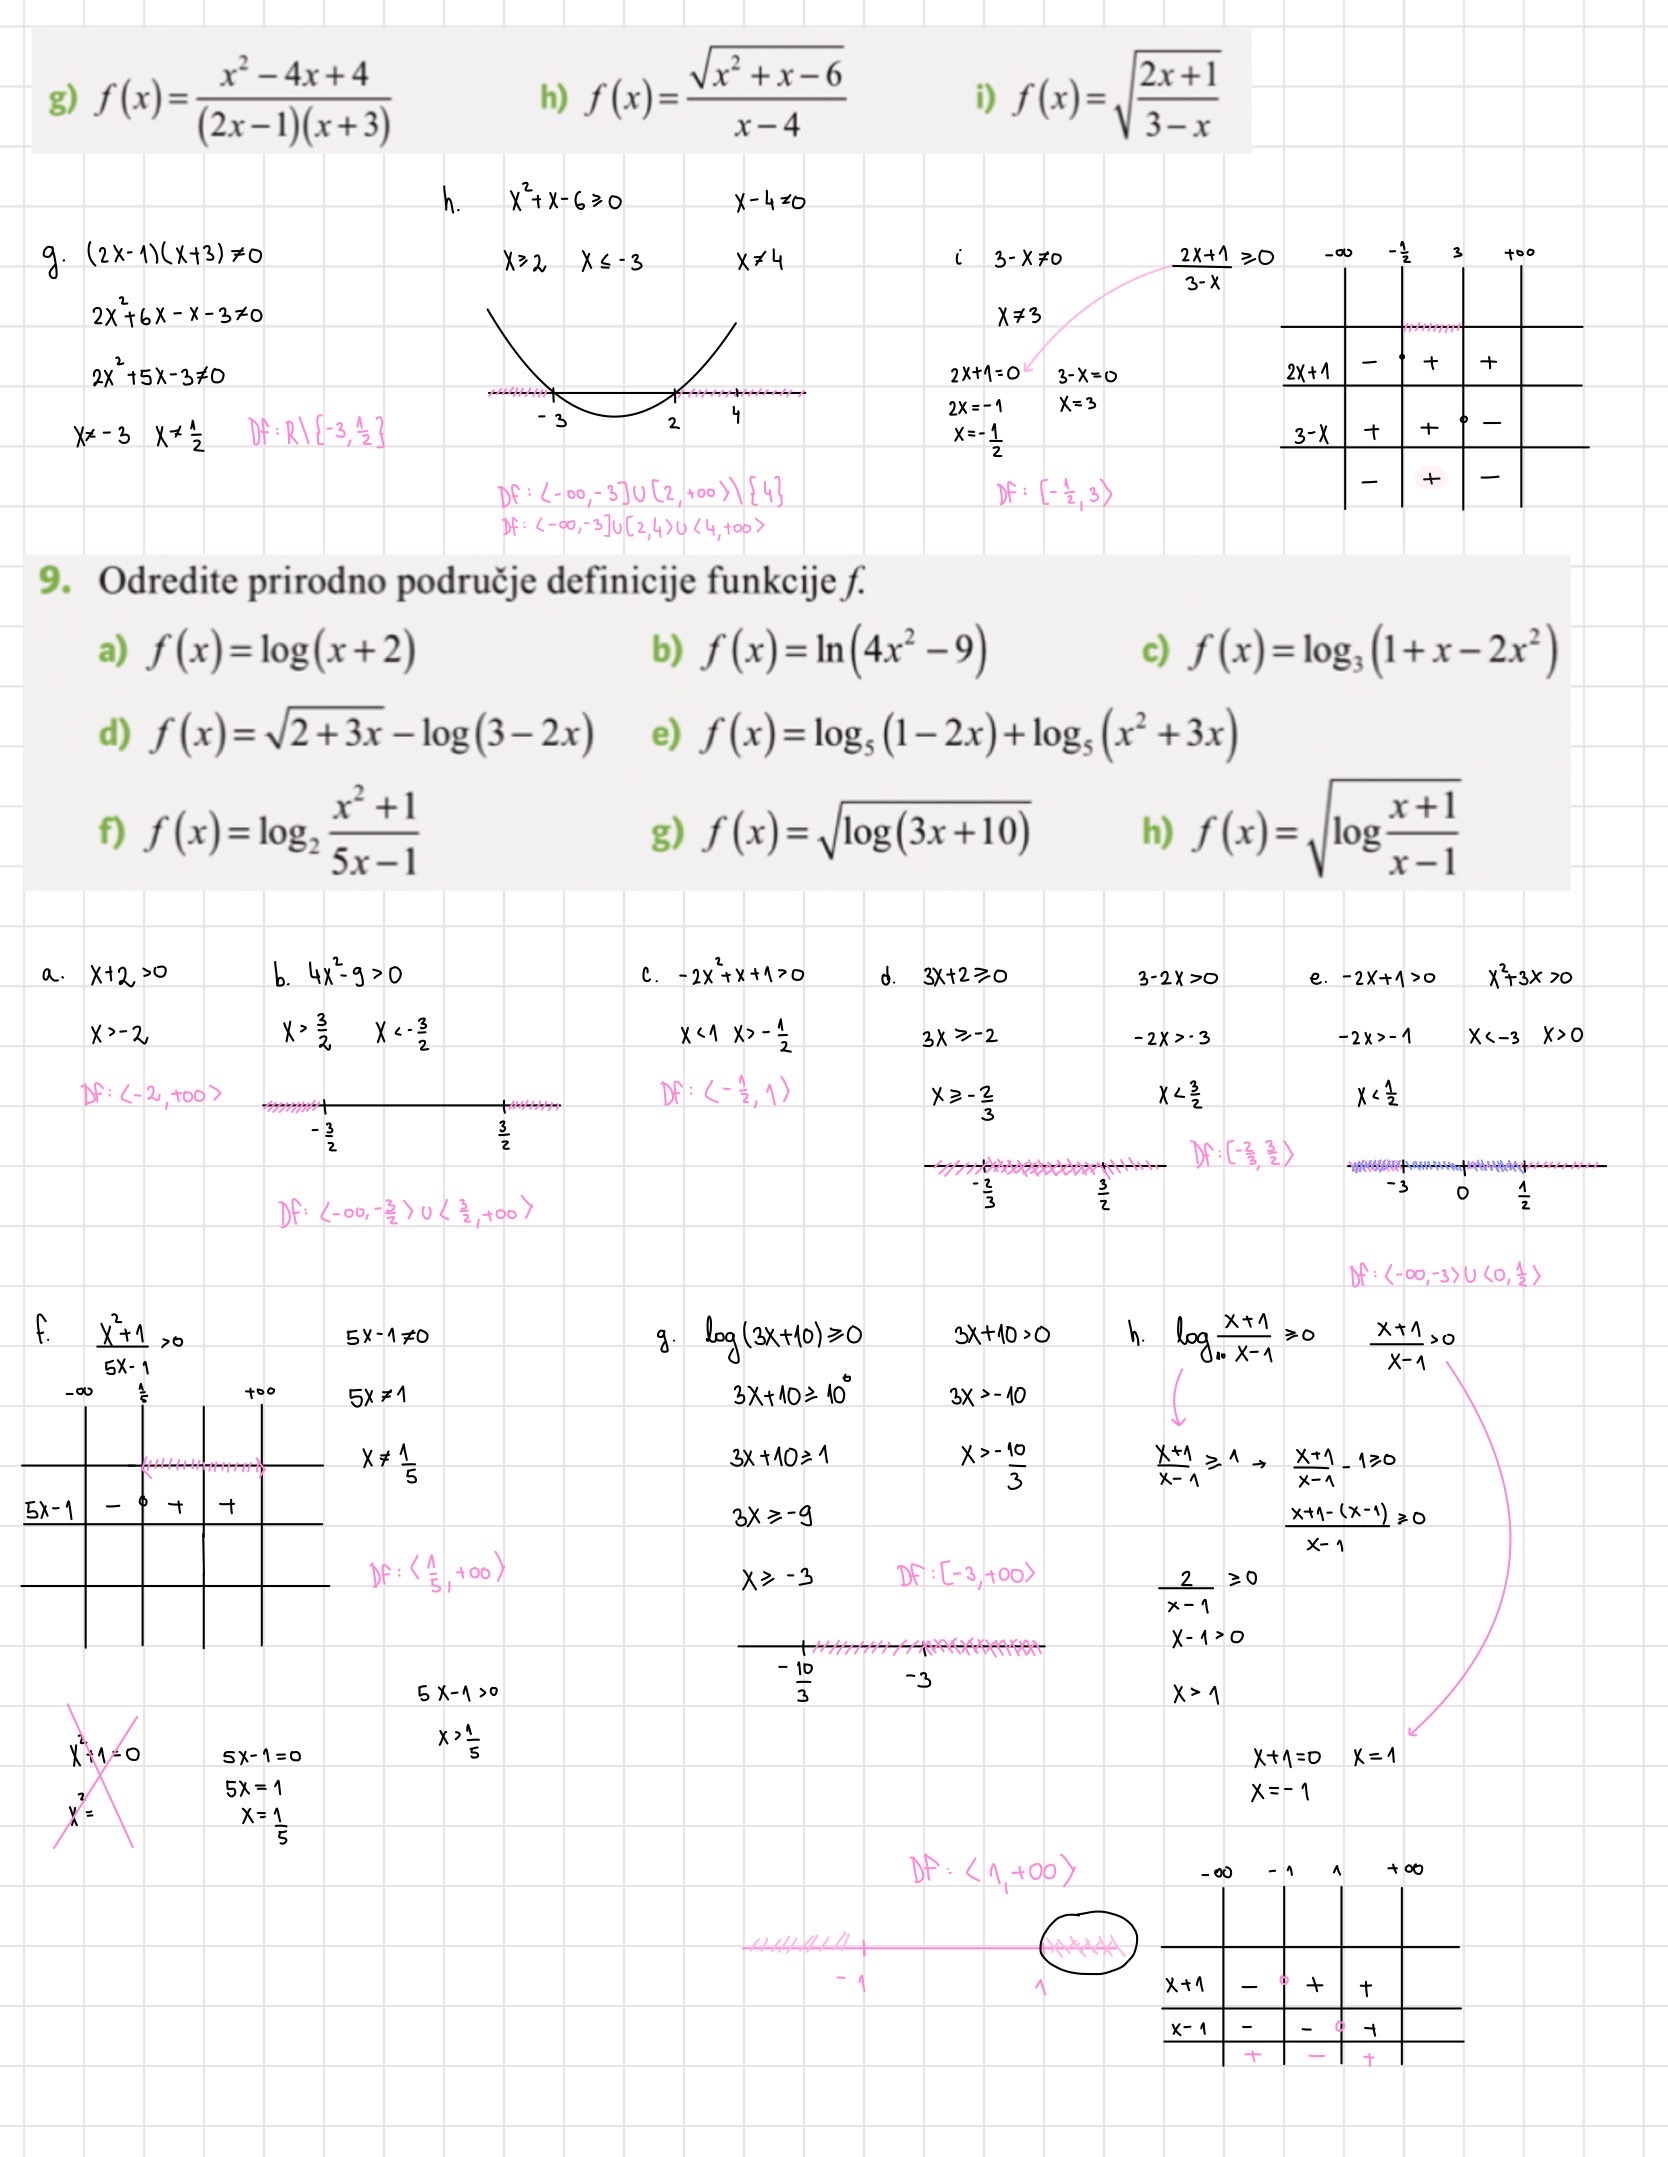 g) f(x) = (x² − 4x + 4) / ((2x−1)(x+3))
h) f(x) = √(x² + x − 6) / (x − 4)
i) f(x) = √((2x+1) / (3 − x))
g. (2x-1)(x+3) ≠ 0
2x²+6x-x-3≠0
2x²+5x-3≠0
x≠-3 x≠1/2 Df: R\{-3, 1/2}
h. x²+x-6≥0 x-4≠0
x≥2 x≤-3 x≠4
-3 2 4
Df: <-∞,-3]∪[2,+∞>\{4}
Df: <-∞,-3]∪[2,4>∪<4,+∞>
i 3-x≠0 (2x+1)/(3-x) ≥0
x≠3
2x+1=0 3-x=0
2x=-1 x=3
x=-1/2
Df: [-1/2, 3>
-∞ -1/2 3 +∞
2x+1 - + +
3-x + + -
- + -
9. Odredite prirodno područje definicije funkcije f.
a) f(x) = log(x+2)
b) f(x) = ln(4x² − 9)
c) f(x) = log₃(1+x−2x²)
d) f(x) = √(2+3x) − log(3−2x)
e) f(x) = log₅(1−2x) + log₅(x²+3x)
f) f(x) = log₂ (x²+1)/(5x−1)
g) f(x) = √(log(3x+10))
h) f(x) = √(log (x+1)/(x−1))
a. x+2>0
x>-2
Df: <-2,+∞>
b. 4x²-9>0
x>3/2 x<-3/2
-3/2 3/2
Df: <-∞,-3/2>∪<3/2,+∞>
c. -2x²+x+1>0
x<1 x>-1/2
Df: <-1/2, 1>
d. 3x+2≥0 3-2x>0
3x≥-2 -2x>-3
x≥-2/3 x<3/2
-2/3 3/2 Df: [-2/3, 3/2>
e. -2x+1>0 x²+3x>0
-2x>-1 x<-3 x>0
x<1/2
-3 0 1/2
Df: <-∞,-3>∪<0,1/2>
f. (x²+1)/(5x-1) >0 5x-1≠0
5x≠1
x≠1/5
-∞ 1/5 +∞
5x-1 - + +
Df: <1/5,+∞>
5x-1>0
x>1/5
x²+1=0
x²=
5x-1=0
5x=1
x=1/5
g. log(3x+10)≥0 3x+10>0
3x+10≥10⁰ 3x>-10
3x+10≥1 x>-10/3
3x≥-9
x≥-3 Df: [-3,+∞>
-10/3 -3
h. log₁₀ (x+1)/(x-1) ≥0 (x+1)/(x-1) >0
(x+1)/(x-1) ≥1 → (x+1)/(x-1) -1≥0
(x+1-(x-1))/(x-1) ≥0
2/(x-1) ≥0
x-1>0
x>1
x+1=0 x=1
x=-1
Df: <1,+∞>
-1 1
-∞ -1 1 +∞
x+1 - + +
x-1 - - +
+ - +